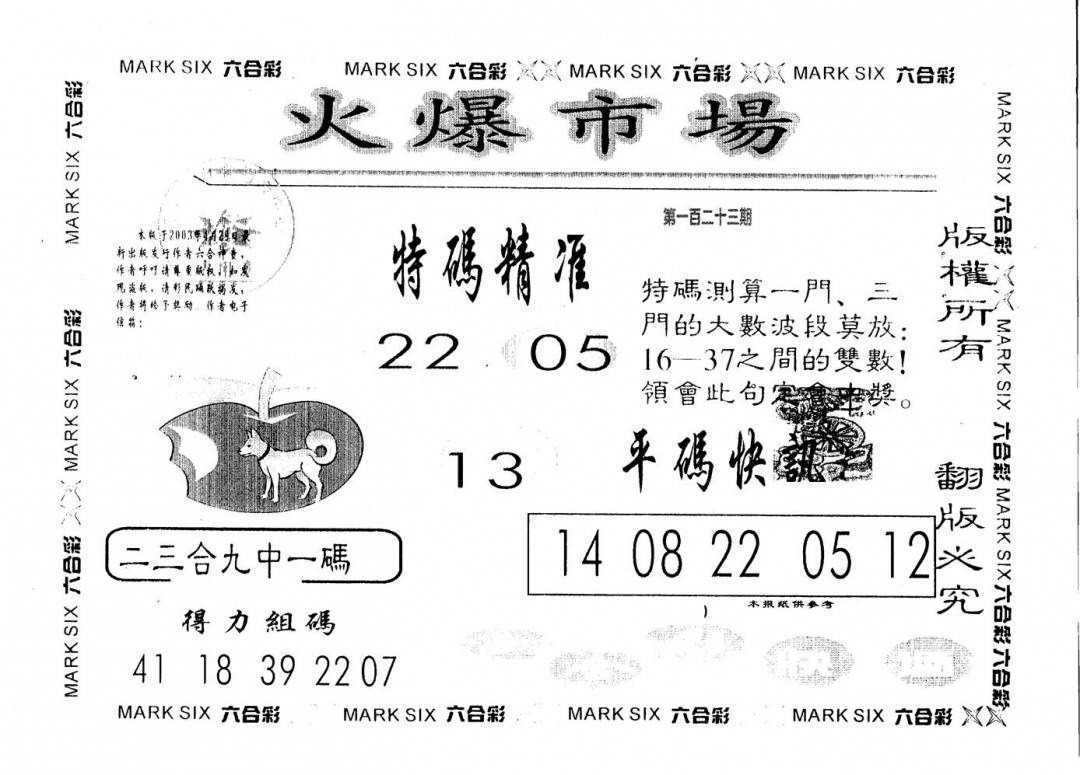 MARK SIX 六合彩 MARK SIX 六合彩 MARK SIX 六合彩 MARK SIX 六合彩
火爆市場
第一百二十三期
新出版发行作者六合神童，
作者呼吁请尊重版权，如发
现盗版，请彩民踊跃揭发，
作者将给予奖励．作者电子
信箱：
特碼精准
22 05
13
特碼測算一門、三
門的大數波段莫放：
16—37之間的雙數！
領會此句定會中獎。
平碼快訊
14 08 22 05 12
本报纸供参考
二三合九中一碼
得力組碼
41 18 39 22 07
版權所有
翻版必究
MARK SIX 六合彩 MARK SIX 六合彩 MARK SIX 六合彩
MARK SIX 六合彩 MARK SIX 六合彩 MARK SIX 六合彩 六合彩
MARK SIX 六合彩 MARK SIX 六合彩 MARK SIX 六合彩 MARK SIX 六合彩